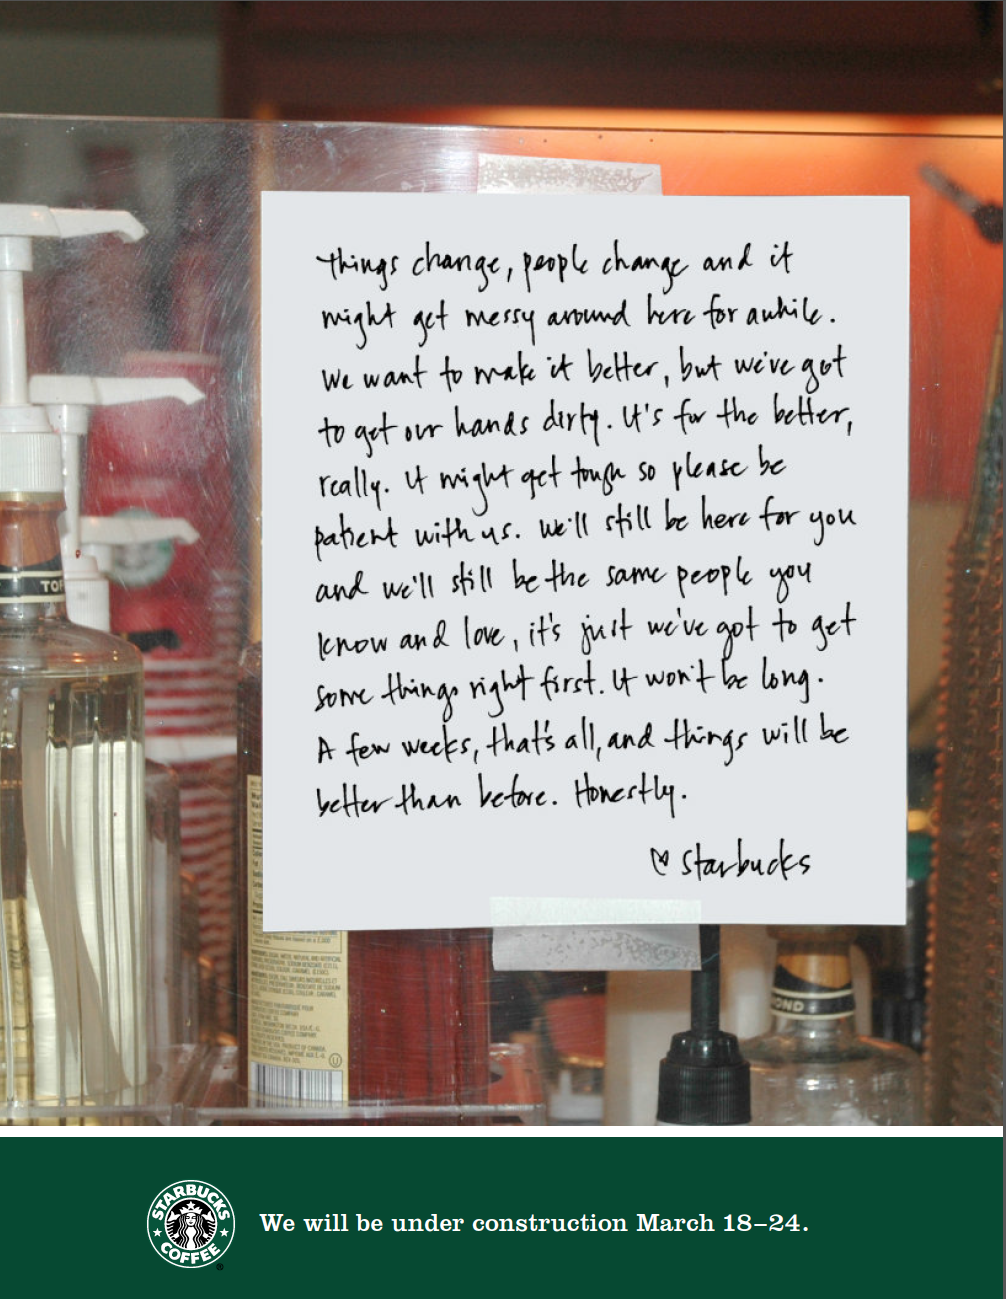 things change, people change and it
might get messy around here for awhile.
We want to make it better, but we've got
to get our hands dirty. It's for the better,
really. It might get tough so please be
patient with us. We'll still be here for you
and we'll still be the same people you
know and love, it's just we've got to get
some things right first. It won't be long.
A few weeks, that's all, and things will be
better than before. Honestly.
♡ Starbucks
TOF
OND
STARBUCKS
COFFEE
We will be under construction March 18–24.